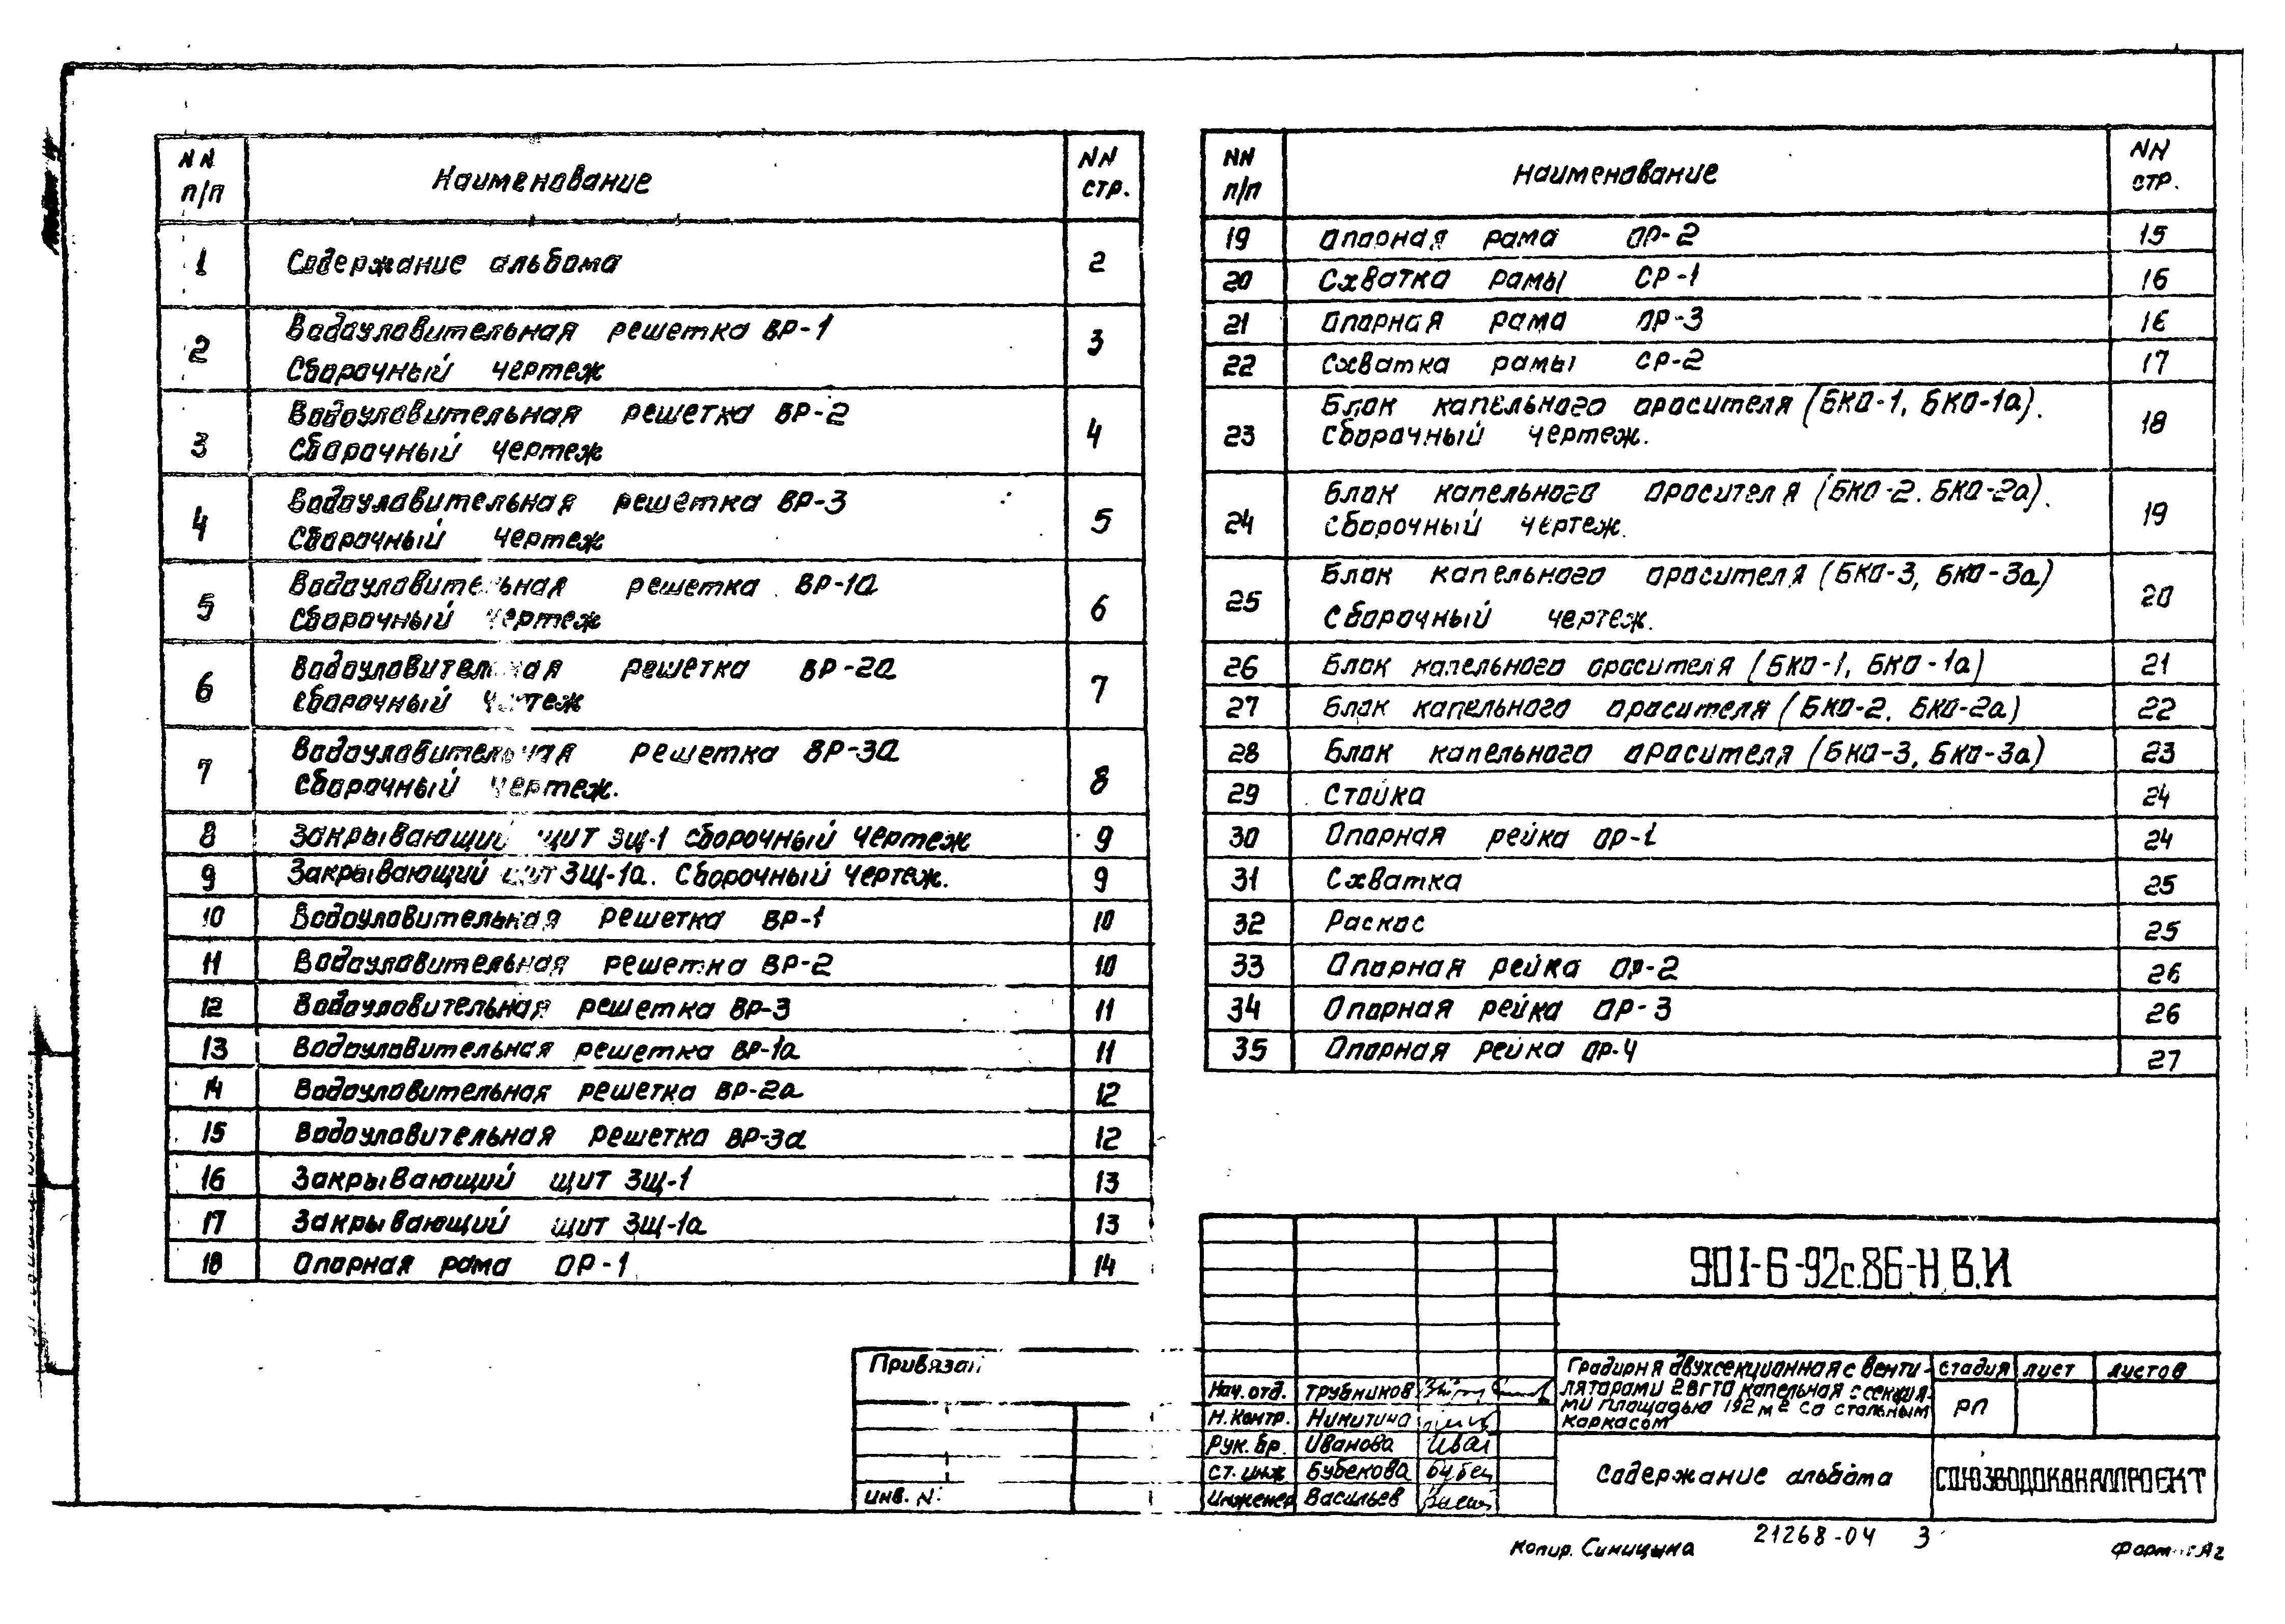 NN п/п Наименование NN стр.
1 Содержание альбома 2
2 Водоуловительная решетка ВР-1 3
Сборочный чертеж
3 Водоуловительная решетка ВР-2 4
Сборочный чертеж
4 Водоуловительная решетка ВР-3 5
Сборочный чертеж
5 Водоуловительная решетка ВР-1а 6
Сборочный чертеж
6 Водоуловительная решетка ВР-2а 7
Сборочный чертеж
7 Водоуловительная решетка ВР-3а 8
Сборочный чертеж.
8 Закрывающий щит ЗЩ-1 сборочный чертеж 9
9 Закрывающий щит ЗЩ-1а. Сборочный чертеж. 9
10 Водоуловительная решетка ВР-1 10
11 Водоуловительная решетка ВР-2 10
12 Водоуловительная решетка ВР-3 11
13 Водоуловительная решетка ВР-1а 11
14 Водоуловительная решетка ВР-2а 12
15 Водоуловительная решетка ВР-3а 12
16 Закрывающий щит ЗЩ-1 13
17 Закрывающий щит ЗЩ-1а 13
18 Опорная рама ОР-1 14
NN п/п Наименование NN стр.
19 Опорная рама ОР-2 15
20 Схватка рамы СР-1 16
21 Опорная рама ОР-3 16
22 Схватка рамы СР-2 17
23 Блок капельного оросителя (БКО-1, БКО-1а). 18
Сборочный чертеж.
24 Блок капельного оросителя (БКО-2. БКО-2а). 19
Сборочный чертеж.
25 Блок капельного оросителя (БКО-3, БКО-3а) 20
Сборочный чертеж.
26 Блок капельного оросителя (БКО-1, БКО-1а) 21
27 Блок капельного оросителя (БКО-2. БКО-2а) 22
28 Блок капельного оросителя (БКО-3, БКО-3а) 23
29 Стойка 24
30 Опорная рейка ОР-1 24
31 Схватка 25
32 Раскос 25
33 Опорная рейка ОР-2 26
34 Опорная рейка ОР-3 26
35 Опорная рейка ОР-4 27
Привязан
инв. N:
901-6-92с.86-Н.В.И
Нач. отд. Трубников
Н. Контр. Никитина
Рук. бр. Иванова
Ст. инж Бубекова
Инженер Васильев
Градирня двухсекционная с венти-
ляторами 2ВГ70 капельная с секция-
ми площадью 192 м2 со стальным
каркасом
стадия лист листов
РП
Содержание альбома
СОЮЗВОДОКАНАЛПРОЕКТ
Копир. Синицына 21268-04 3 Формат А2